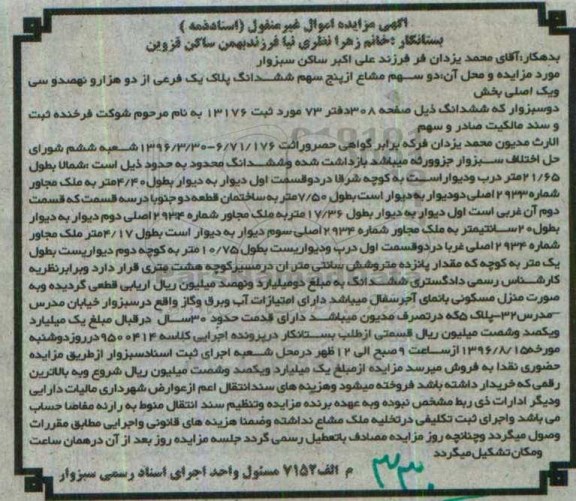 آگهی مزایده اموال غیرمنقول (اسنادذمه)
بستانکار: خانم زهرا نظری نیا فرزندبهمن ساکن قزوین
بدهکار:آقای محمد یزدان فر فرزند علی اکبر ساکن سبزوار
مورد مزایده و محل آن:دو سهم مشاع ازپنج سهم ششدانگ پلاک یک فرعی از دو هزارو نهصدو سی ویک اصلی بخش
دوسبزوار که ششدانگ ذیل صفحه ۳۰۸دفتر ۷۳ مورد ثبت ۱۳۱۷۶ به نام مرحوم شوکت فرخنده ثبت و سند مالکیت صادر و سهم
الارث مدیون محمد یزدان فرکه برابر گواهی حصروراثت ۶/۷۱/۱۷۶-۱۳۹۶/۳/۳۰ شعبه ششم شورای
حل اختلاف سبزوار جزوورثه میباشد بازداشت شده وششدانگ محدود به حدود ذیل است :شمالا بطول
۲۱/۶۵متر درب ودیواراست به کوچه شرقا دردوقسمت اول دیوار به دیوار بطول۴/۴۰متر به ملک مجاور
شماره ۲۹۳۳اصلی دودیوار به دیوار است بطول ۷/۵۰متر به ساختمان قطعه دو جنوبا درسه قسمت که قسمت
دوم آن غربی است اول دیوار به دیوار بطول ۱۷/۳۶ متربه ملک مجاور شماره ۲۹۳۴اصلی دوم دیوار به دیوار
بطول۲۰سانتیمتر به ملک مجاور شماره ۲۹۳۴ اصلی سوم دیوار به دیوار است بطول ۴/۱۷متر ملک مجاور
شماره ۲۹۳۴ اصلی غربا دردوقسمت اول درب ودیواریست بطول ۱۰/۷۵ متر به کوچه دوم دیواریست بطول
یک متر به کوچه که مقدار پانزده متروشش سانتی متر ان درمسیرکوچه هشت متری قرار دارد وبرابرنظریه
کارشناس رسمی دادگستری ششدانگ به مبلغ دومیلیارد ونهصد میلیون ریال ارزیابی قطعی گردیده وبه
صورت منزل مسکونی بانمای آجرسفال میباشد دارای امتیازات آب وبرق وگاز واقع درسبزوار خیابان مدرس
-مدرس۳۲-پلاک ۵که درتصرف مدیون میباشد دارای قدمت حدود ۳۰سال درقبال مبلغ یک میلیارد
ویکصد وشصت میلیون ریال قسمتی ازطلب بستانکار درپرونده اجرایی کلاسه ۹۵۰۰۴۱۴ درروزدوشنبه
مورخه۱۳۹۶/۸/۱۵ ازساعت ۹صبح الی ۱۲ ظهر درمحل شعبه اجرای ثبت اسنادسبزوار ازطریق مزایده
حضوری نقدا به فروش میرسد مزایده ازمبلغ یک میلیارد ویکصد وشصت میلیون ریال شروع وبه بالاترین
رقمی که خریدار داشته باشد فروخته میشود وهزینه های سندانتقال اعم ازعوارض شهرداری مالیات دارایی
ودیگر ادارات ذی ربط مشخص نبوده وبه عهده برنده مزایده وتنظیم سند انتقال منوط به رارئه مفاصا حساب
می باشد واجرای ثبت تکلیفی درتخلیه ملک مشاع نداشته وضمنا هزینه های قانونی واجرایی مطابق مقررات
وصول میگردد وچنانچه روز مزایده مصادف باتعطیل رسمی گردد جلسه مزایده روز بعد از آن درهمان ساعت
ومکان تشکیل میگردد
م الف۷۱۵۲ مسئول واحد اجرای اسناد رسمی سبزوار